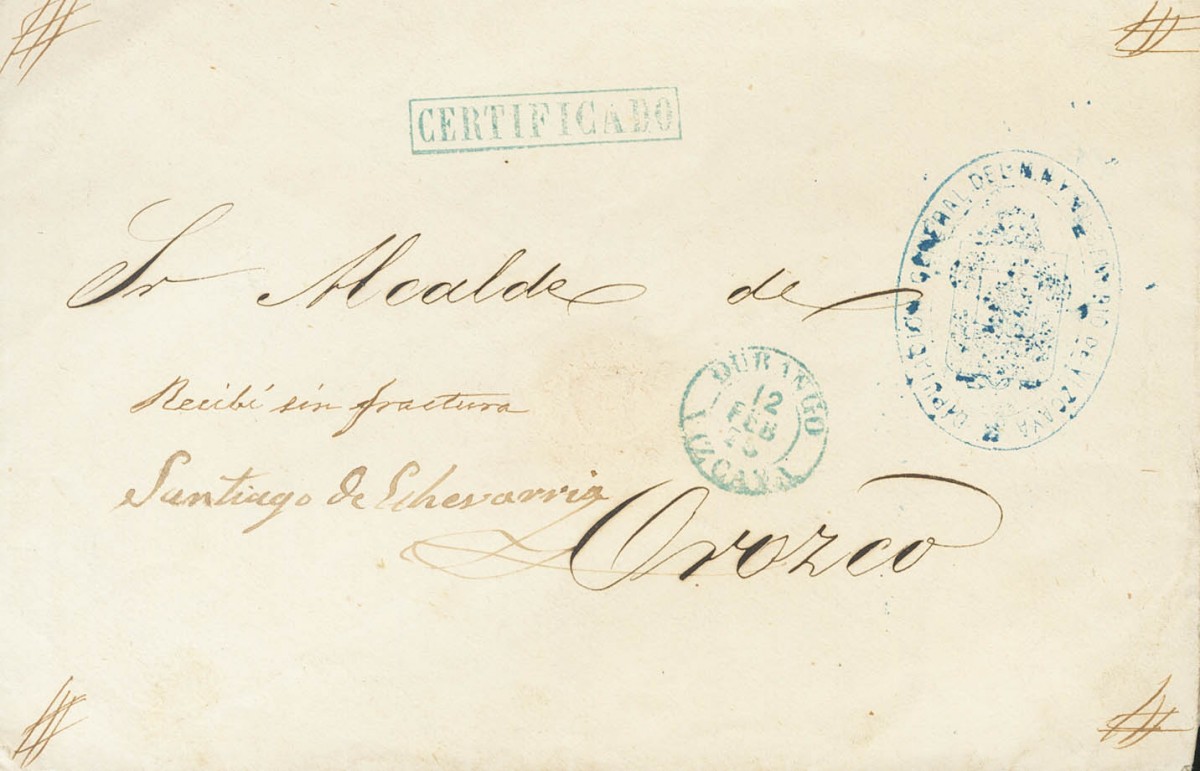 CERTIFICADO
DIPUTACION GENERAL DEL M.N.Y M.L. SEÑORIO DE VIZCAYA
Sr Alcalde de
DURANGO
12
FEB
VIZCAYA
Recibí sin fractura
Santiago de Echevarria
Orozco